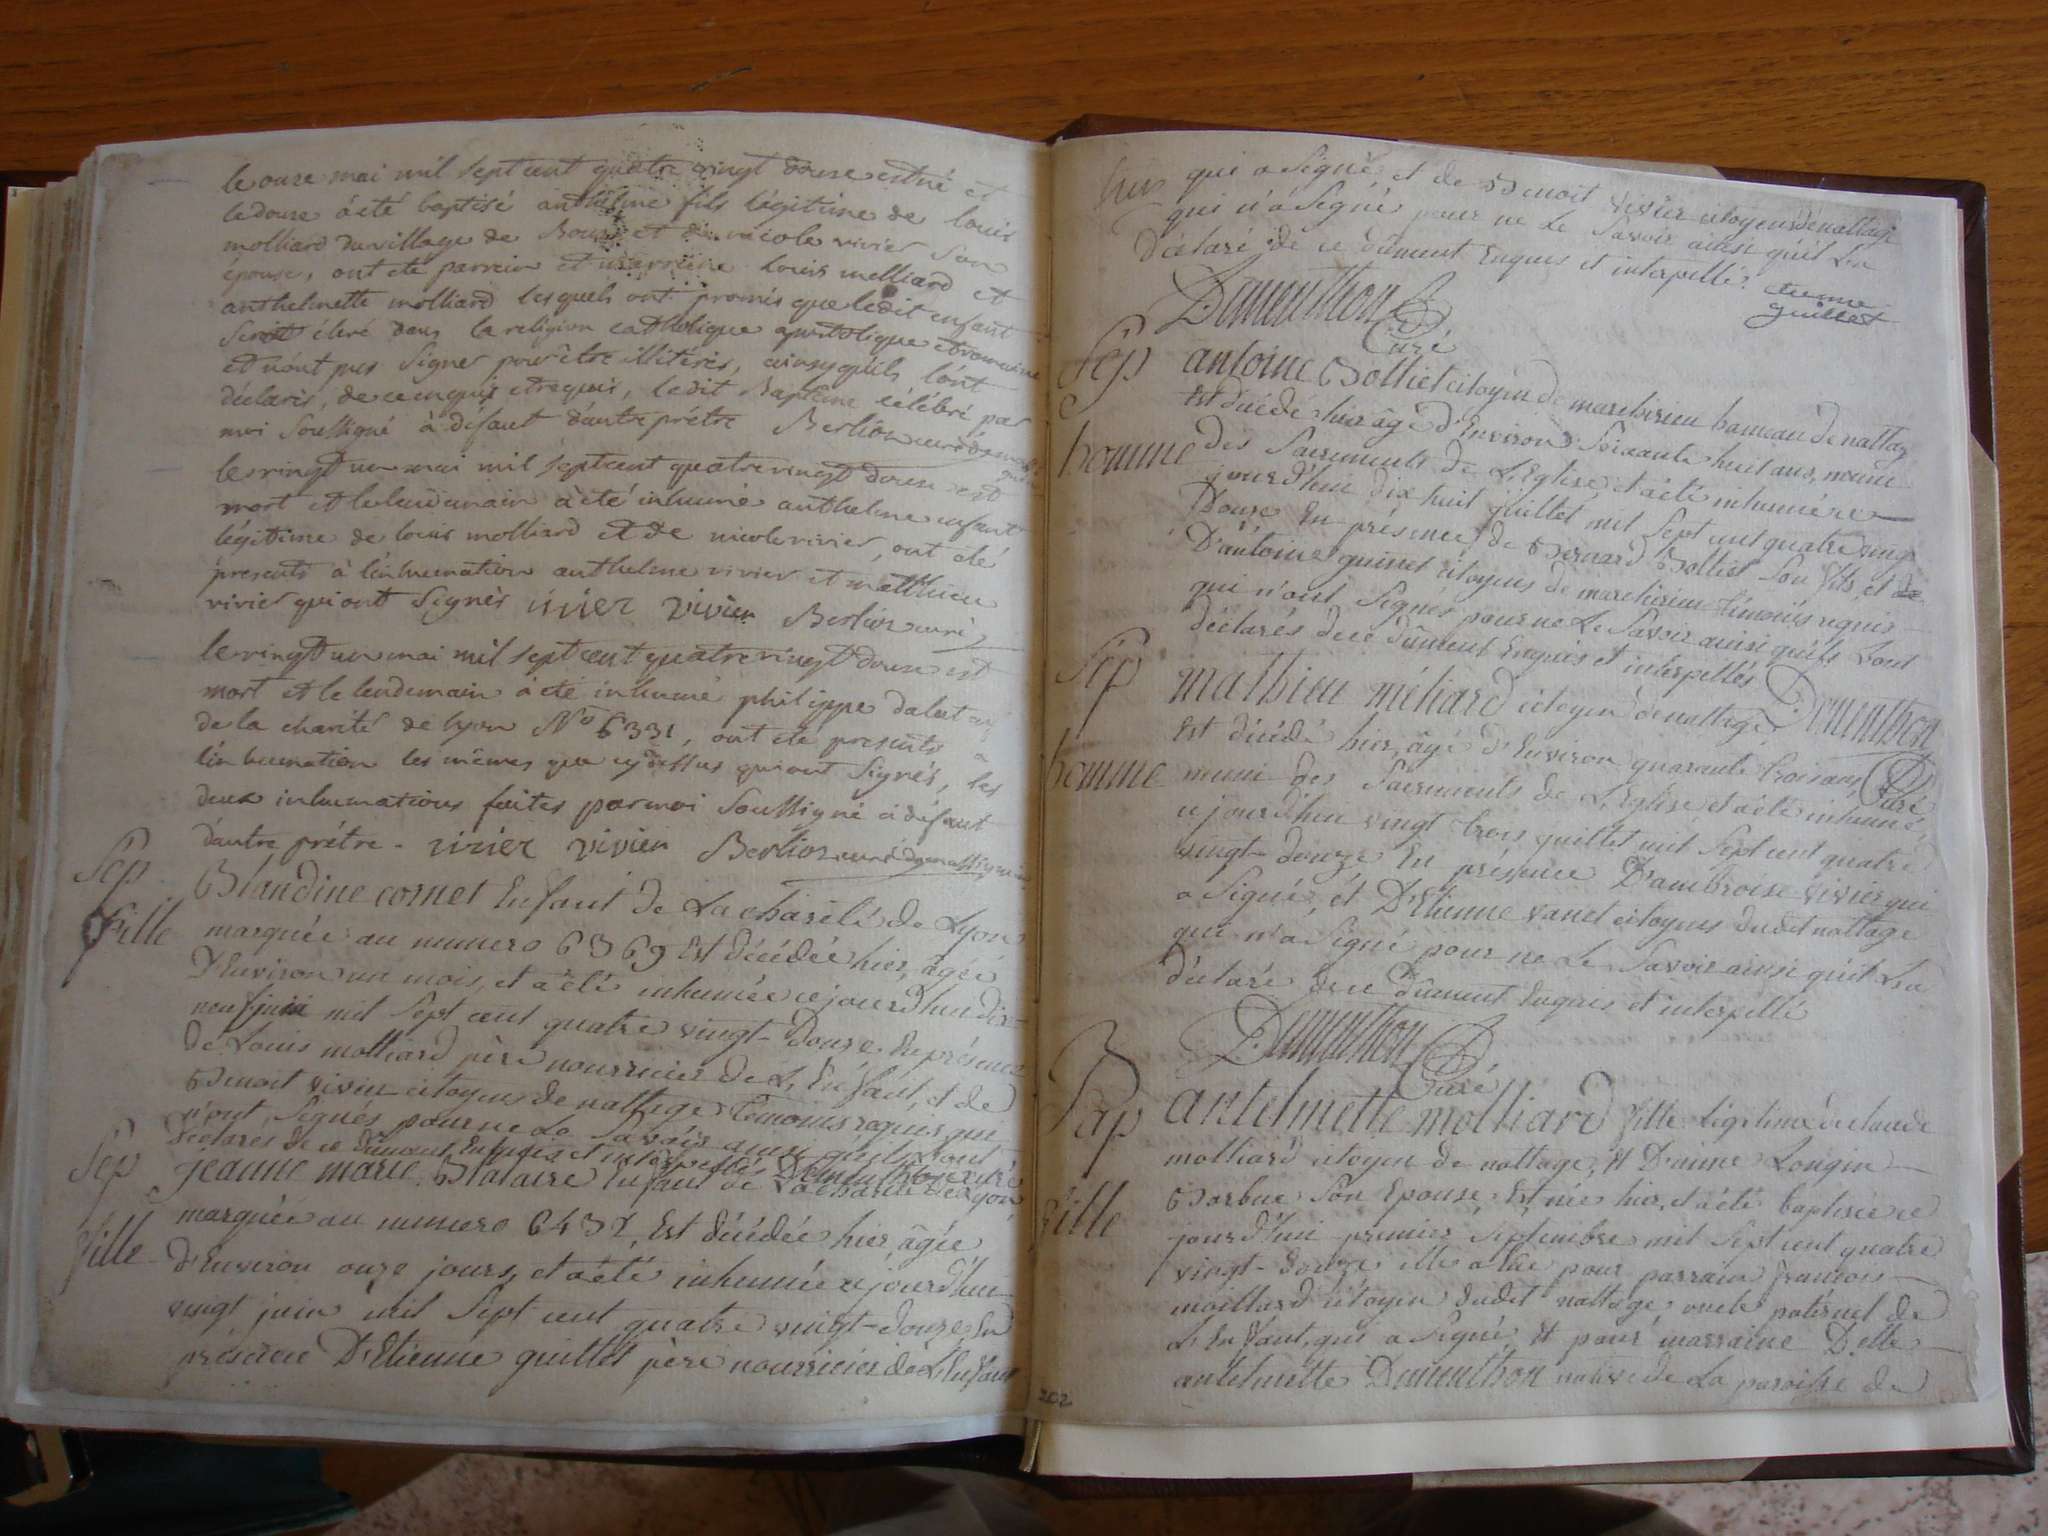 le onze mai mil sept cent quatre vingt douze est né et
le douze à été baptisé anthelme fils légitime de louis
molliard du village de et de nicole vivier son
épouse, ont ete parrein et marreine louis molliard et
anthelmette molliard lesquels ont promis que ledit enfant
seroit élevé dans la religion catholique apostolique et romaine
et n'ont pas signer pour être illitérés, ainsy qu'ils l'ont
déclarés, de ce enquis et requis, ledit Baptême célébré par
moi soussigné à défaut d'autre prétre Berlioz curé
le vingt un mai mil sept cent quatre vingt douze est
mort et le lendemain à été inhumé anthelme enfant
légitime de louis molliard et de nicole vivier, ont été
presents à l'inhumation anthelme vivier et matthieu
vivier qui ont signés vivier vivier Berlioz curé
le vingt un mai mil sept cent quatre vingt douze est
mort et le lendemain à été inhumé philippe
de la charité de lyon No 6331, ont ete presents à
l'inhumation les mêmes que cy dessus qui ont signés, les
deux inhumations faites par moi soussigné à défaut
d'autre prétre. vivier vivier Berlioz curé
Sep Blandine cornet Enfant de La charité de Lyon
fille marquée au numero 6369 Est décédée hier, âgée
D'Environ un mois, et a été inhumée ce jourd'hui dix
neuf juin mil sept cent quatre vingt-douze En présence
de Louis molliard père nourricier de L'Enfant, et de
Benoit vivier citoyens de nattage témoins requis qui
n'ont signés pour ne Le Savoir ainsi qu'ils L'ont
déclarés de ce dûment Enquis et interpellés Dementhon curé
Sep jeanne marie Enfant de La charité de Lyon
marquée au numero Est décédée hier âgée
fille D'Environ onze jours, et a été inhumée ce jourd'hui
vingt juin mil sept cent quatre vingt-douze En
présence D'Etienne guillet père nourricier de L'Enfant
qui a signé et de Benoit vivier citoyens de nattage
qui n'a signé pour ne Le Savoir ainsi qu'il L'a
Déclaré de ce dûment Enquis et interpellé. etienne
guillet
Dementhon
Curé
Sep antoine Bottiet citoyen de marchisieu hameau de nattage
Est décédé hier âgé d'Environ soixante huit ans, muni
homme des Sacrements de L'Eglise et a été inhumé ce
jourd'hui dix huit juillet mil sept cent quatre vingt
Douze En présence de Bernard Bottiet son fils, et de
D'antoine guinet citoyens de marchisieu témoins requis
qui n'ont signés pour ne Le Savoir ainsi qu'ils L'ont
déclarés de ce dûment Enquis et interpellés
Sep mathieu méliard citoyen de nattage Dementhon
Est décédé hier, âgé d'Environ quarante trois ans, Curé
homme muni des Sacrements de L'Eglise et a été inhumé
ce jourd'hui vingt trois juillet mil sept cent quatre
vingt-douze En présence D'ambroise vivier qui
a signé, et D'Etienne vanet citoyens dudit nattage
qui n'a signé pour ne Le Savoir ainsi qu'il L'a
déclaré de ce dûment Enquis et interpellé
Dementhon
Curé
Bap antelmette molliard fille Légitime de claude
molliard citoyen de nattage, et D'aime Longin
fille Barbue son Epouse, Est née hier, et a été baptisée ce
jourd'hui premier septembre mil sept cent quatre
vingt-douze elle a Eue pour parrain françois
moilliard citoyen dudit nattage oncle paternel de
L'Enfant, qui a signé, et pour marraine D.elle
antelmette Dementhon native de La paroisse de
202